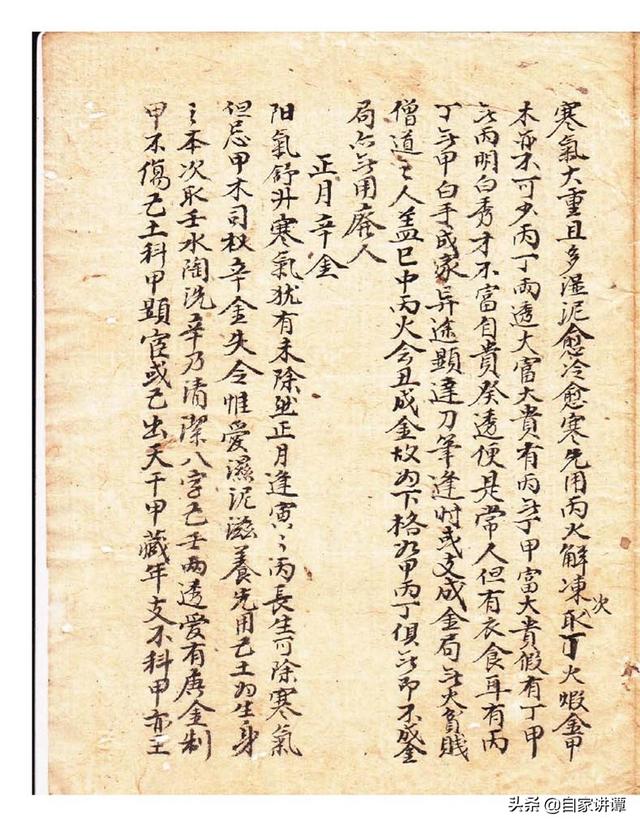 寒氣大重且多湿泥愈冷愈寒先用丙火解凍次取丁火煆金甲
木亦不可少丙丁兩透大富大貴有丙无丁甲富大貴假有丁甲
无丙明白秀才不富自貴癸透便是常人但有衣食耳有丙
丁无甲白手成家异途顯達刀筆逢时或支成金局无火貧賤
僧道之人盖巳中丙火会丑成金故为下格甲丙丁俱无即不成金
局亦无用廃人
正月辛金
阳氣舒升寒氣犹有未除然正月逢寅々丙長生可除寒氣
但忌甲木司秋辛金失令惟爱濕泥滋養先用己土为生身
之本次取壬水陶洗辛乃清潔八字己壬两透爱有庚金制
甲不傷己土科甲顕宦或己出天干甲藏年支不科甲亦王
头条 @自家讲谭